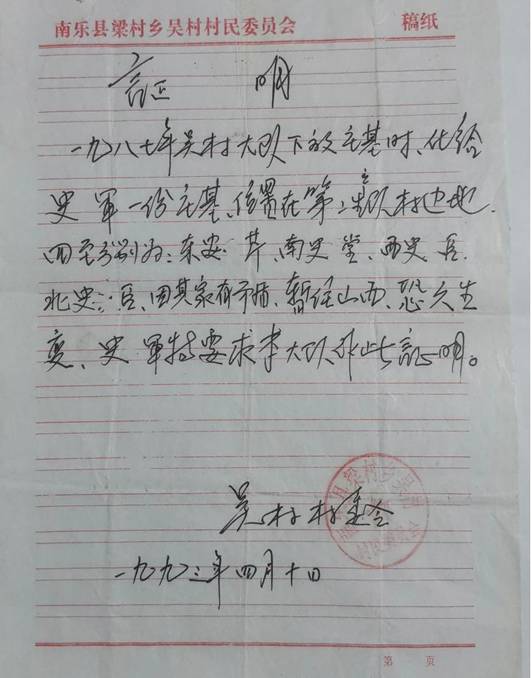 南乐县梁村乡吴村村民委员会 稿纸
証 明
一九八七年吴村大队下放宅基时、化给
史 軍一份宅基、位置在第二生产队村边地.
四至分别为:东安 芹、南史 堂、西史 臣、
北史 臣、因其家有矛盾、暂住山西、恐久生
变、史 軍特要求李大队补此証明。
吴村村委会
一九九三年四月十日
第 页